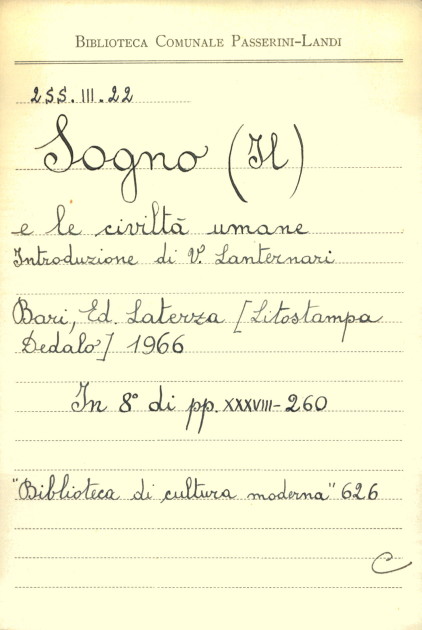 BIBLIOTECA COMUNALE PASSERINI-LANDI
255.III.22
Sogno (Il)
e le civiltà umane
Introduzione di V. Lanternari
Bari, Ed. Laterza [Litostampa
Dedalo] 1966
In 8° di pp. XXXVIII-260
"Biblioteca di cultura moderna" 626
C